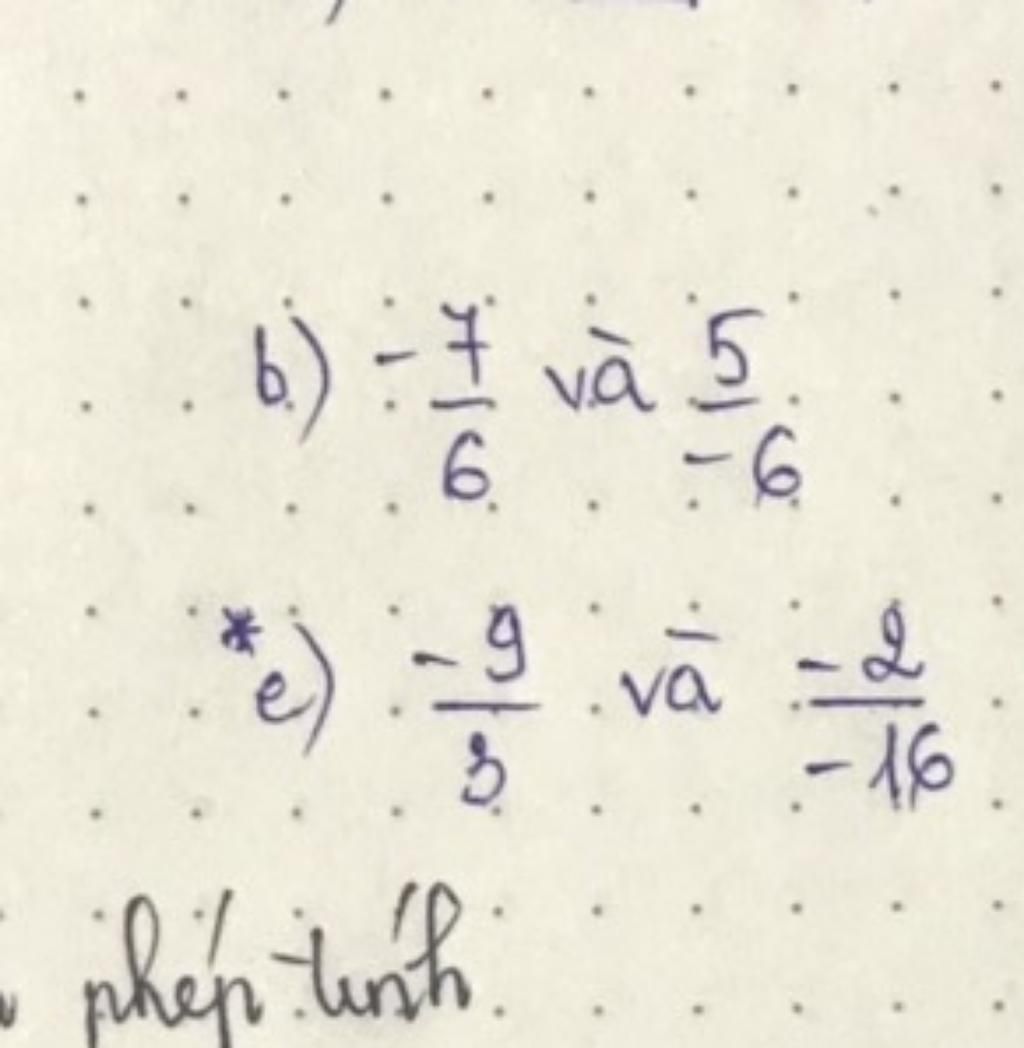 b) -7/6 và 5/-6
* e) -9/3 và -2/-16
phép tính